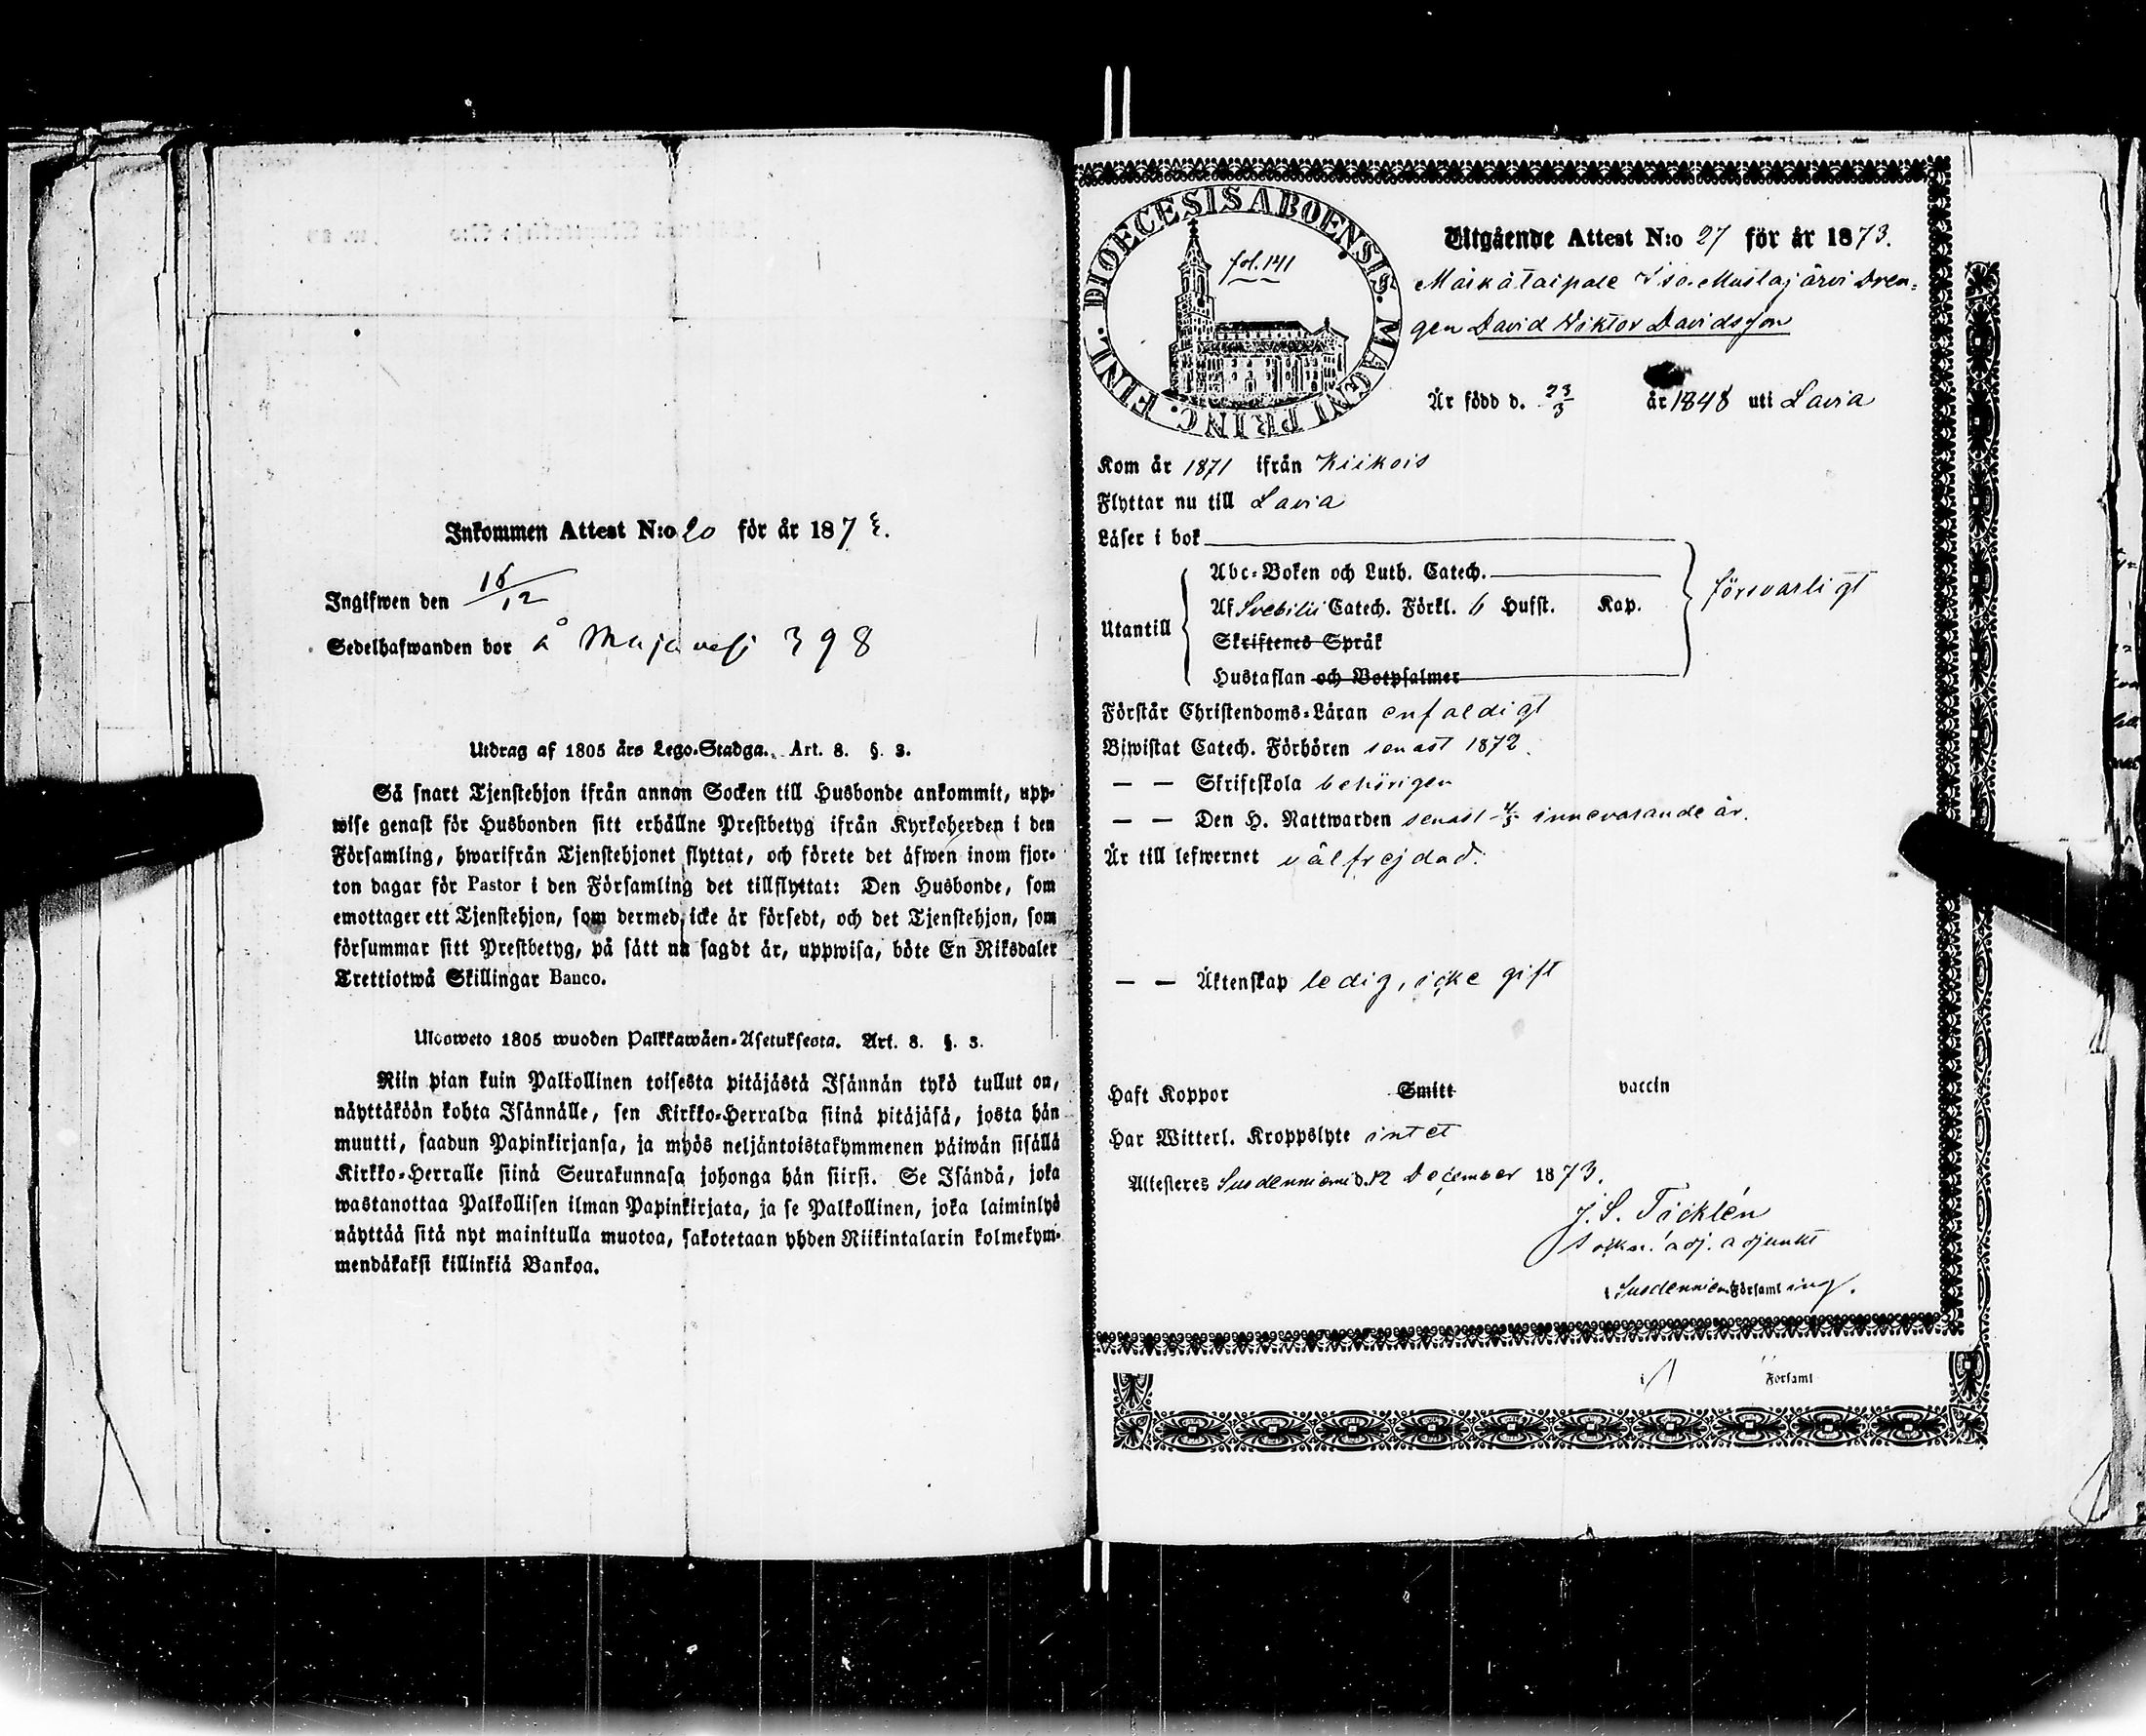 Inkommen Attest N:o 20 för år 1873.
Ingifwen den 15/12
Sedelhafwanden bor å Majavesi 398
Utdrag af 1805 års Lego-Stadga. Art. 8. §. 3.
Så snart Tjenstehjon ifrån annan Socken till Husbonde ankommit, upp-
wise genast för Husbonden sitt erhållne Prestbetyg ifrån Kyrkoherden i den
Församling, hwarifrån Tjenstehjonet flyttat, och förete det äfwen inom fjor-
ton dagar för Pastor i den Församling det tillflyttat: Den Husbonde, som
emottager ett Tjenstehjon, som dermed icke är försedt, och det Tjenstehjon, som
försummar sitt Prestbetyg, på sätt nu sagdt är, uppwisa, böte En Riksdaler
Trettiotwå Skillingar Banco.
Ulosweto 1805 wuoden Palkkawäen-Asetuksesta. Art. 8. §. 3.
Niin pian kuin Palkollinen toisesta pitäjästä Isännän tykö tullut on,
näyttäköön kohta Isännälle, sen Kirkko-Herralda siinä pitäjäsä, josta hän
muutti, saadun Papinkirjansa, ja myös neljäntoistakymmenen päiwän sisällä
Kirkko-Herralle siinä Seurakunnasa johonga hän siirsi. Se Isändä, joka
wastanottaa Palkollisen ilman Papinkirjata, ja se Palkollinen, joka laiminlyö
näyttää sitä nyt mainitulla muotoa, sakotetaan yhden Riikintalarin kolmekym-
mendäkaksi killinkiä Bankoa.
DIOECESIS ABOENSIS. MAGNI PRINC. FINL.
fol. 141
Utgående Attest N:o 27 för år 1873.
Maikätaipale Iso-Mustajärvi Dren-
gen David Viktor Davidsson
Är född d. 23/3 år 1848 uti Lavia
Kom år 1871 ifrån Kiikois
Flyttar nu till Lavia
Läser i bok
Abc-Boken och Luth. Catech.
Utantill
Af Svebilii Catech. Förkl. 6 Hufst. Kap.
försvarligt
Skriftenes Språk
Hustaflan och Botpsalmer
Förstår Christendoms-Läran enfaldigt
Biwistat Catech. Förhören senast 1872.
— — Skriftskola behörigen
— — Den H. Nattwarden senast 4/5 innevarande år.
Är till lefwernet välfrejdad.
— — Äktenskap ledig, icke gift
Haft Koppor Smitt vaccin
Har Witterl. Kroppslyte intet
Attesteres Suodenniemi d. 12 December 1873.
J. S. Täcklén
sockn. adj. adjunkt
i Suodenniemi Församling.
i Församl